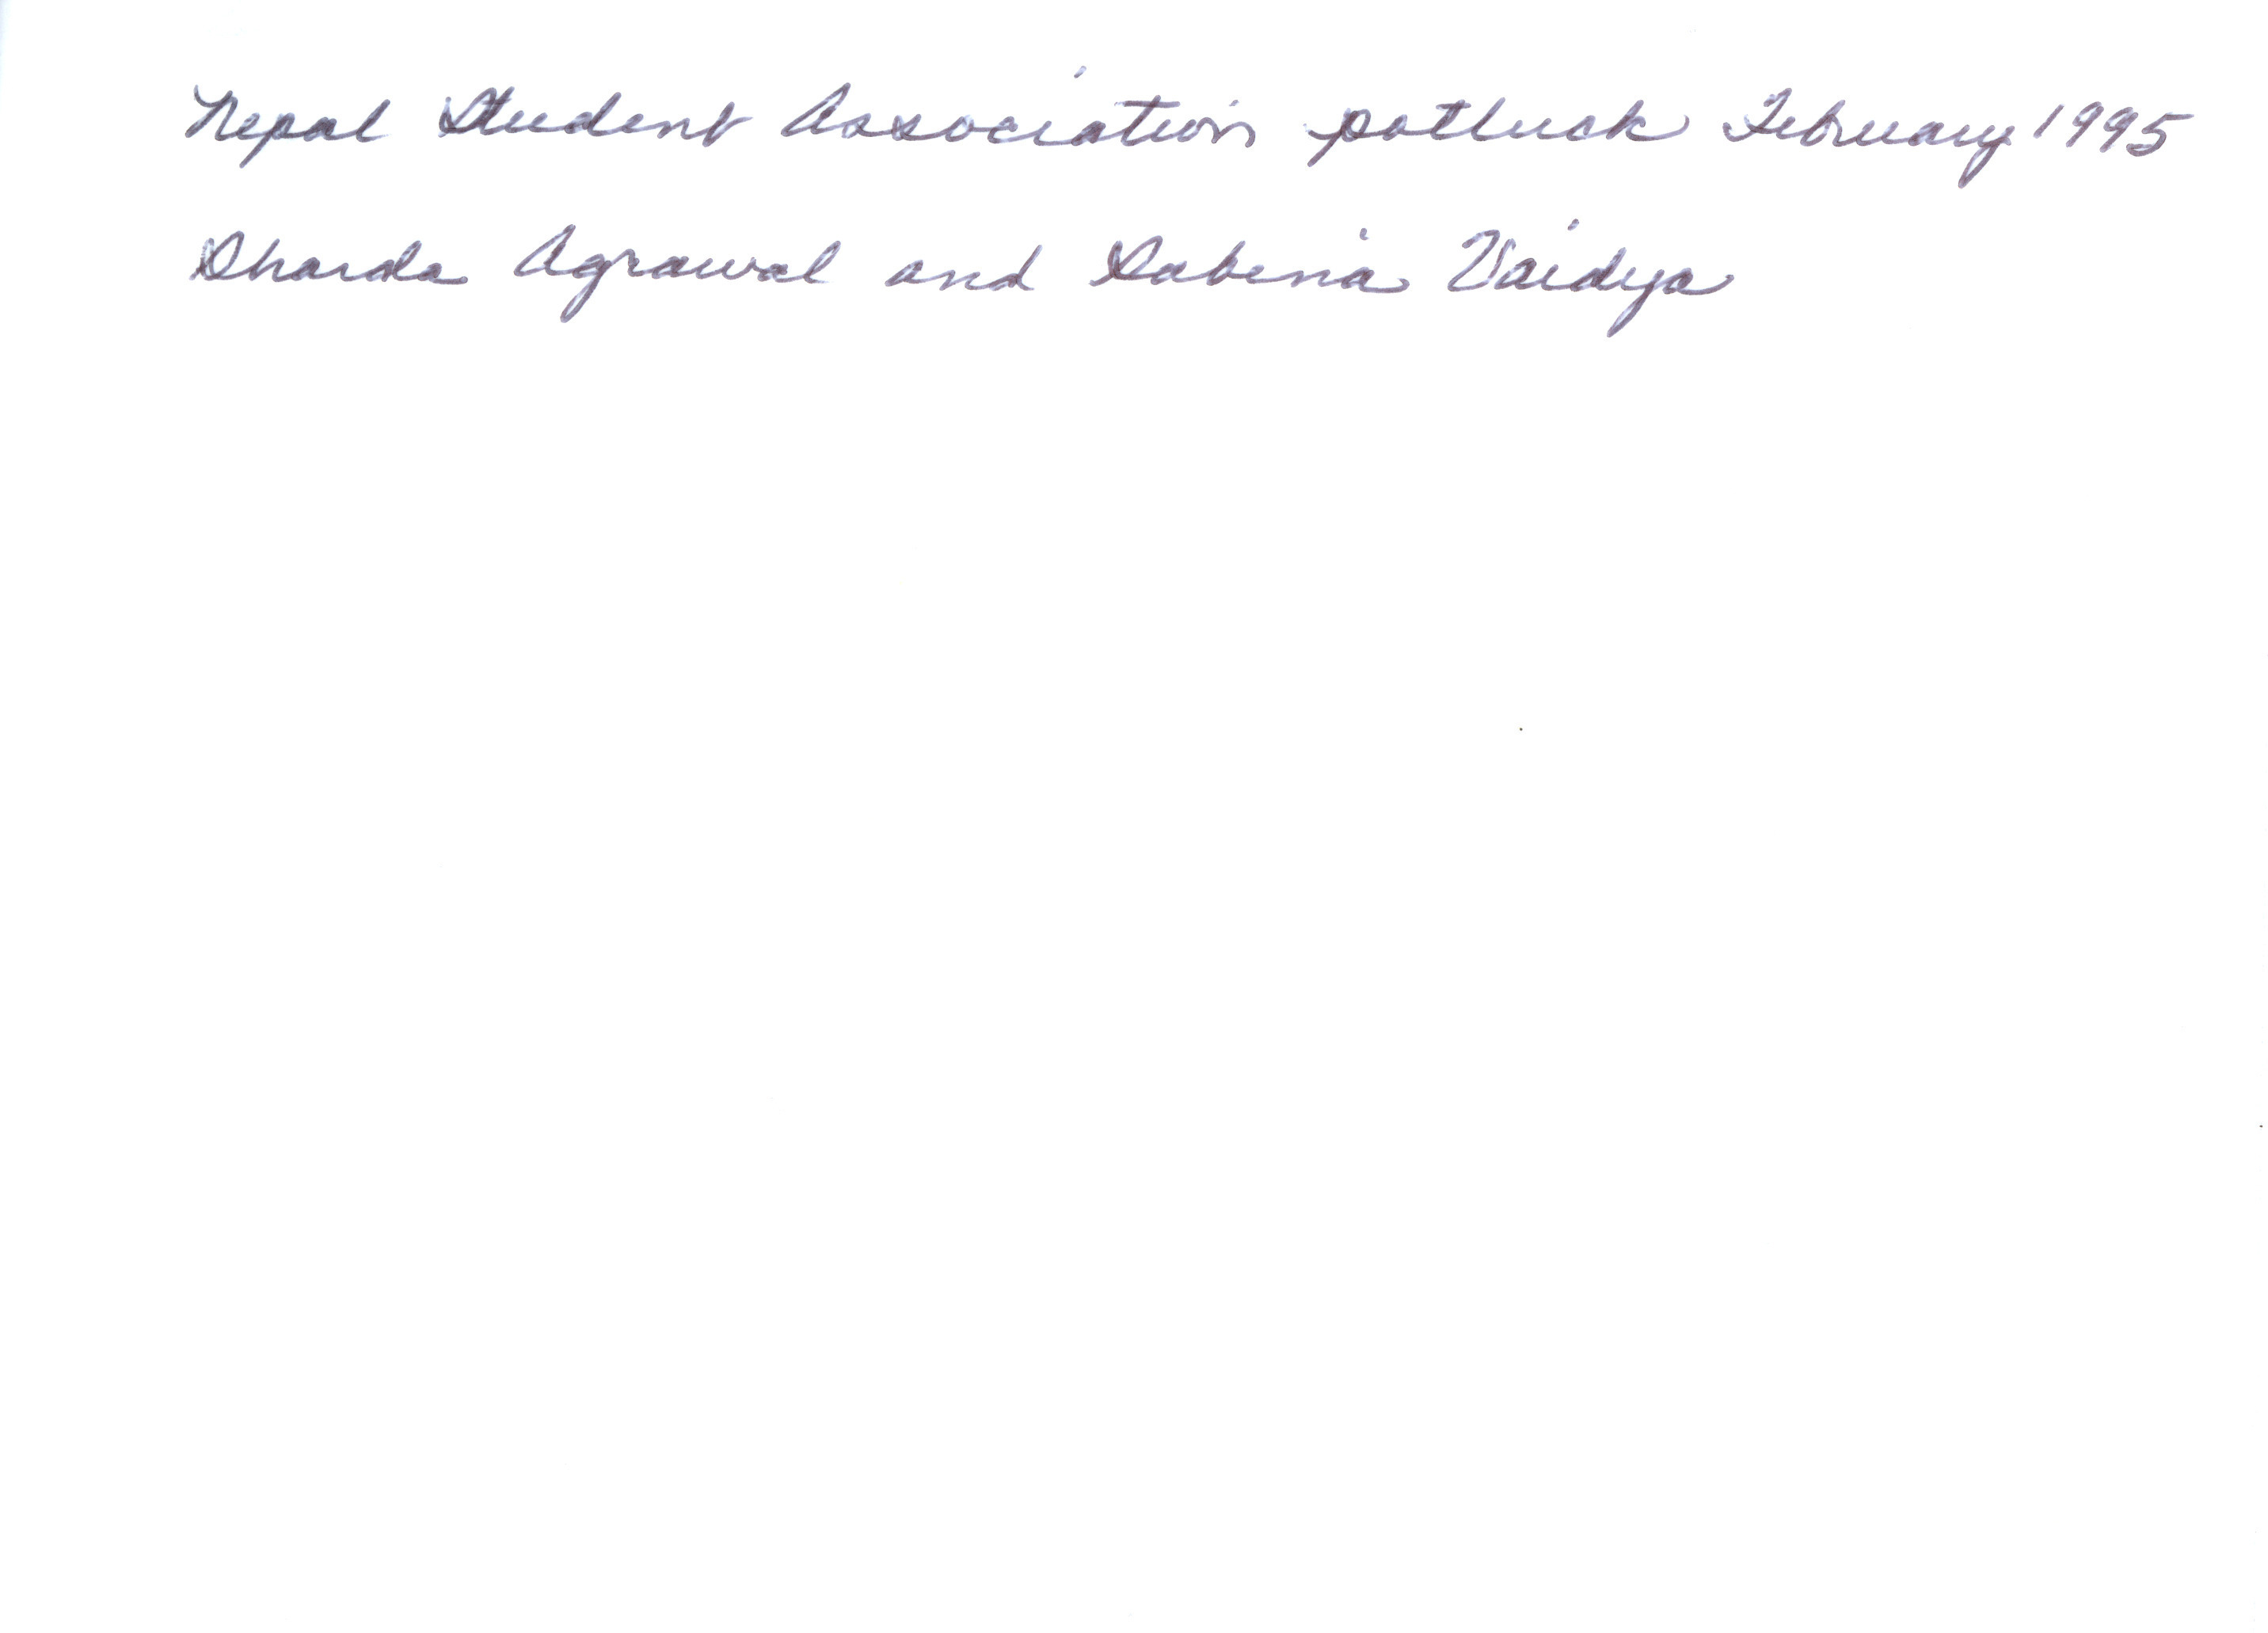 Nepal Student Association potluck February 1995
Sharda Agrawal and Sabina Vaidya